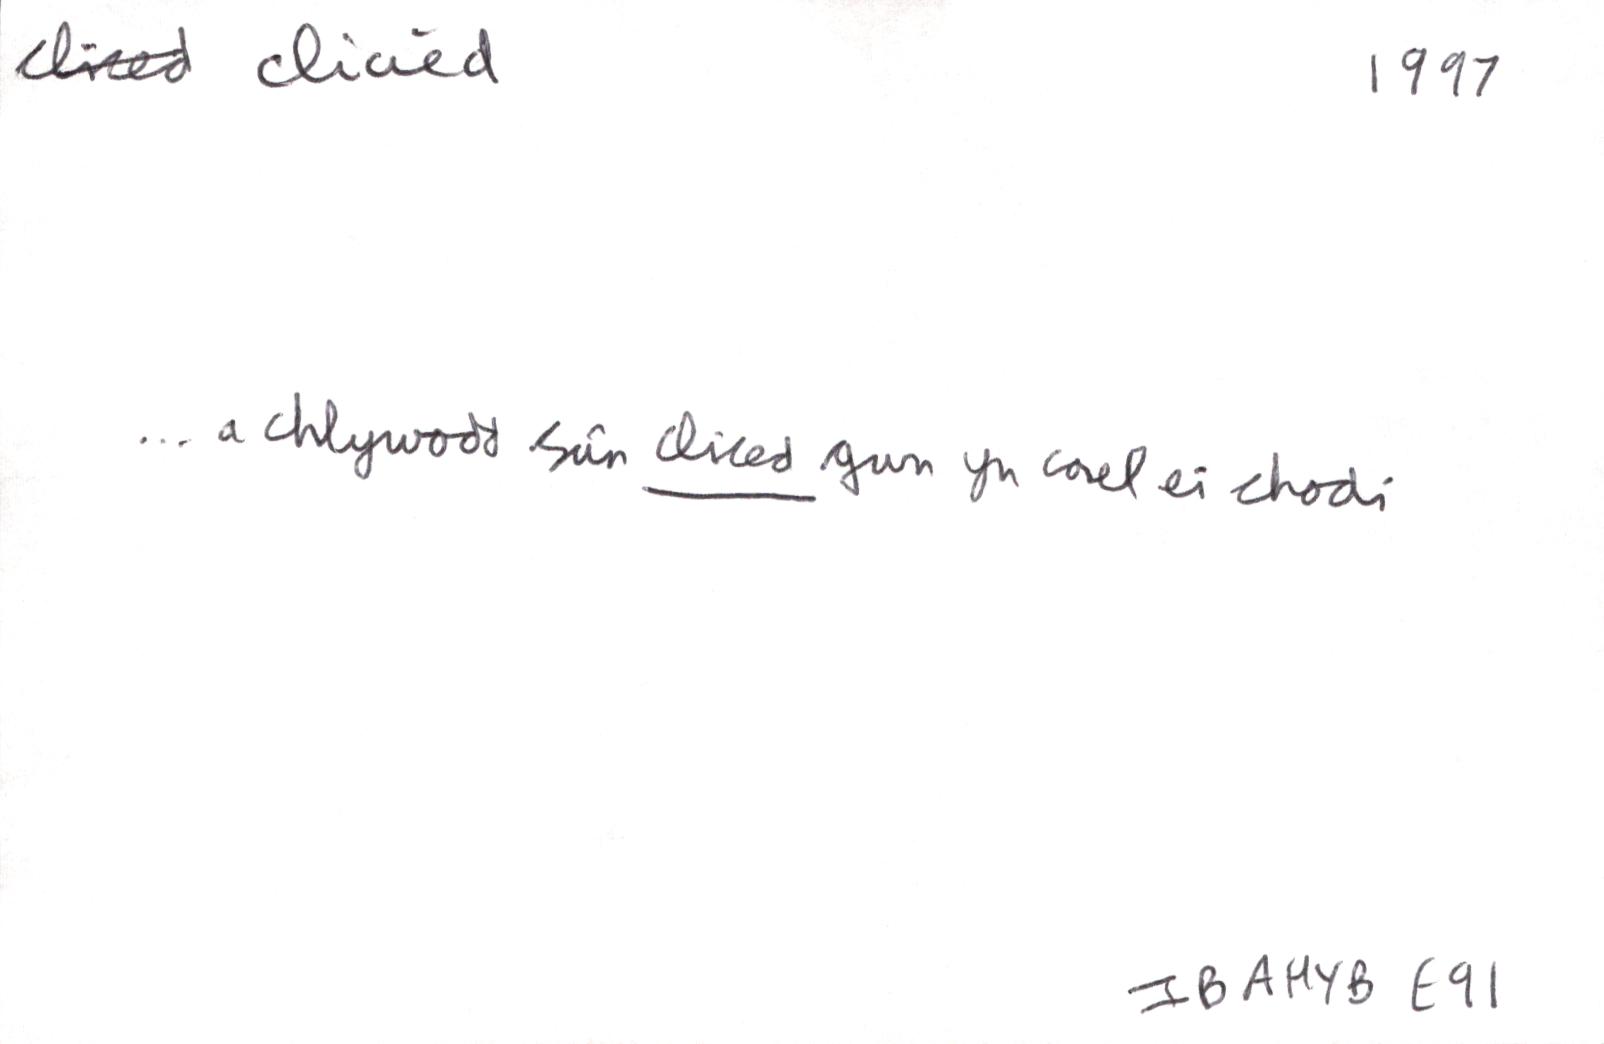 cliced clicied 1997
... a chlywodd sŵn cliced gwn yn cael ei chodi
IB AHYB E91